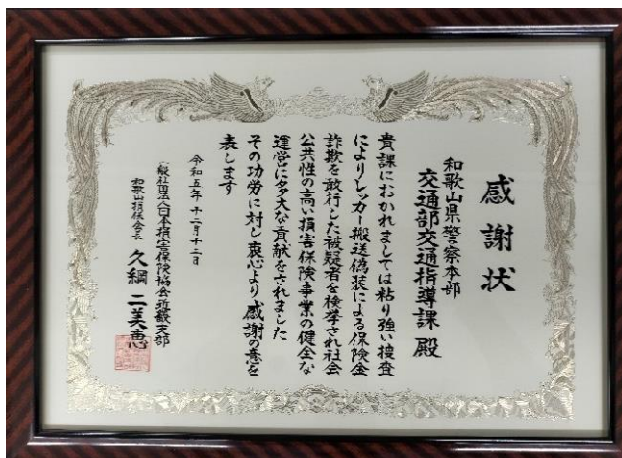 感謝状
和歌山県警察本部
交通部交通指導課 殿
貴課におかれましては粘り強い捜査
によりレッカー搬送偽装による保険金
詐欺を敢行した被疑者を検挙され社会
公共性の高い損害保険事業の健全な
運営に多大な貢献をされました
その功労に対し衷心より感謝の意を
表します
令和五年十二月十二日
一般社団法人日本損害保険協会近畿支部
和歌山損保会長 久綱 二美恵